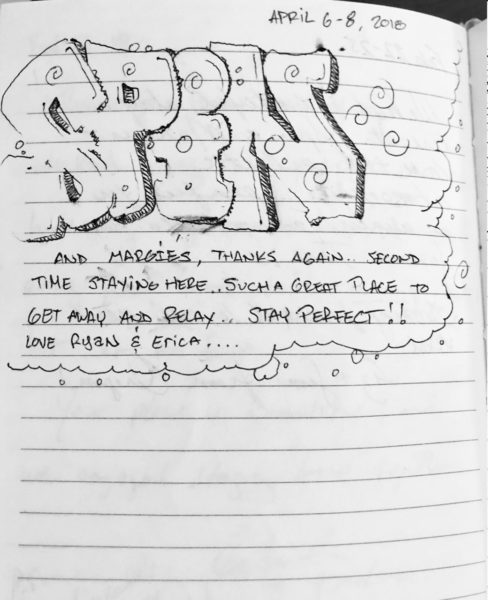 APRIL 6-8, 2018
SPIN
AND MARGIES, THANKS AGAIN.. SECOND
TIME STAYING HERE.. SUCH A GREAT PLACE TO
GET AWAY AND RELAX.. STAY PERFECT!!
LOVE RYAN & ERICA....